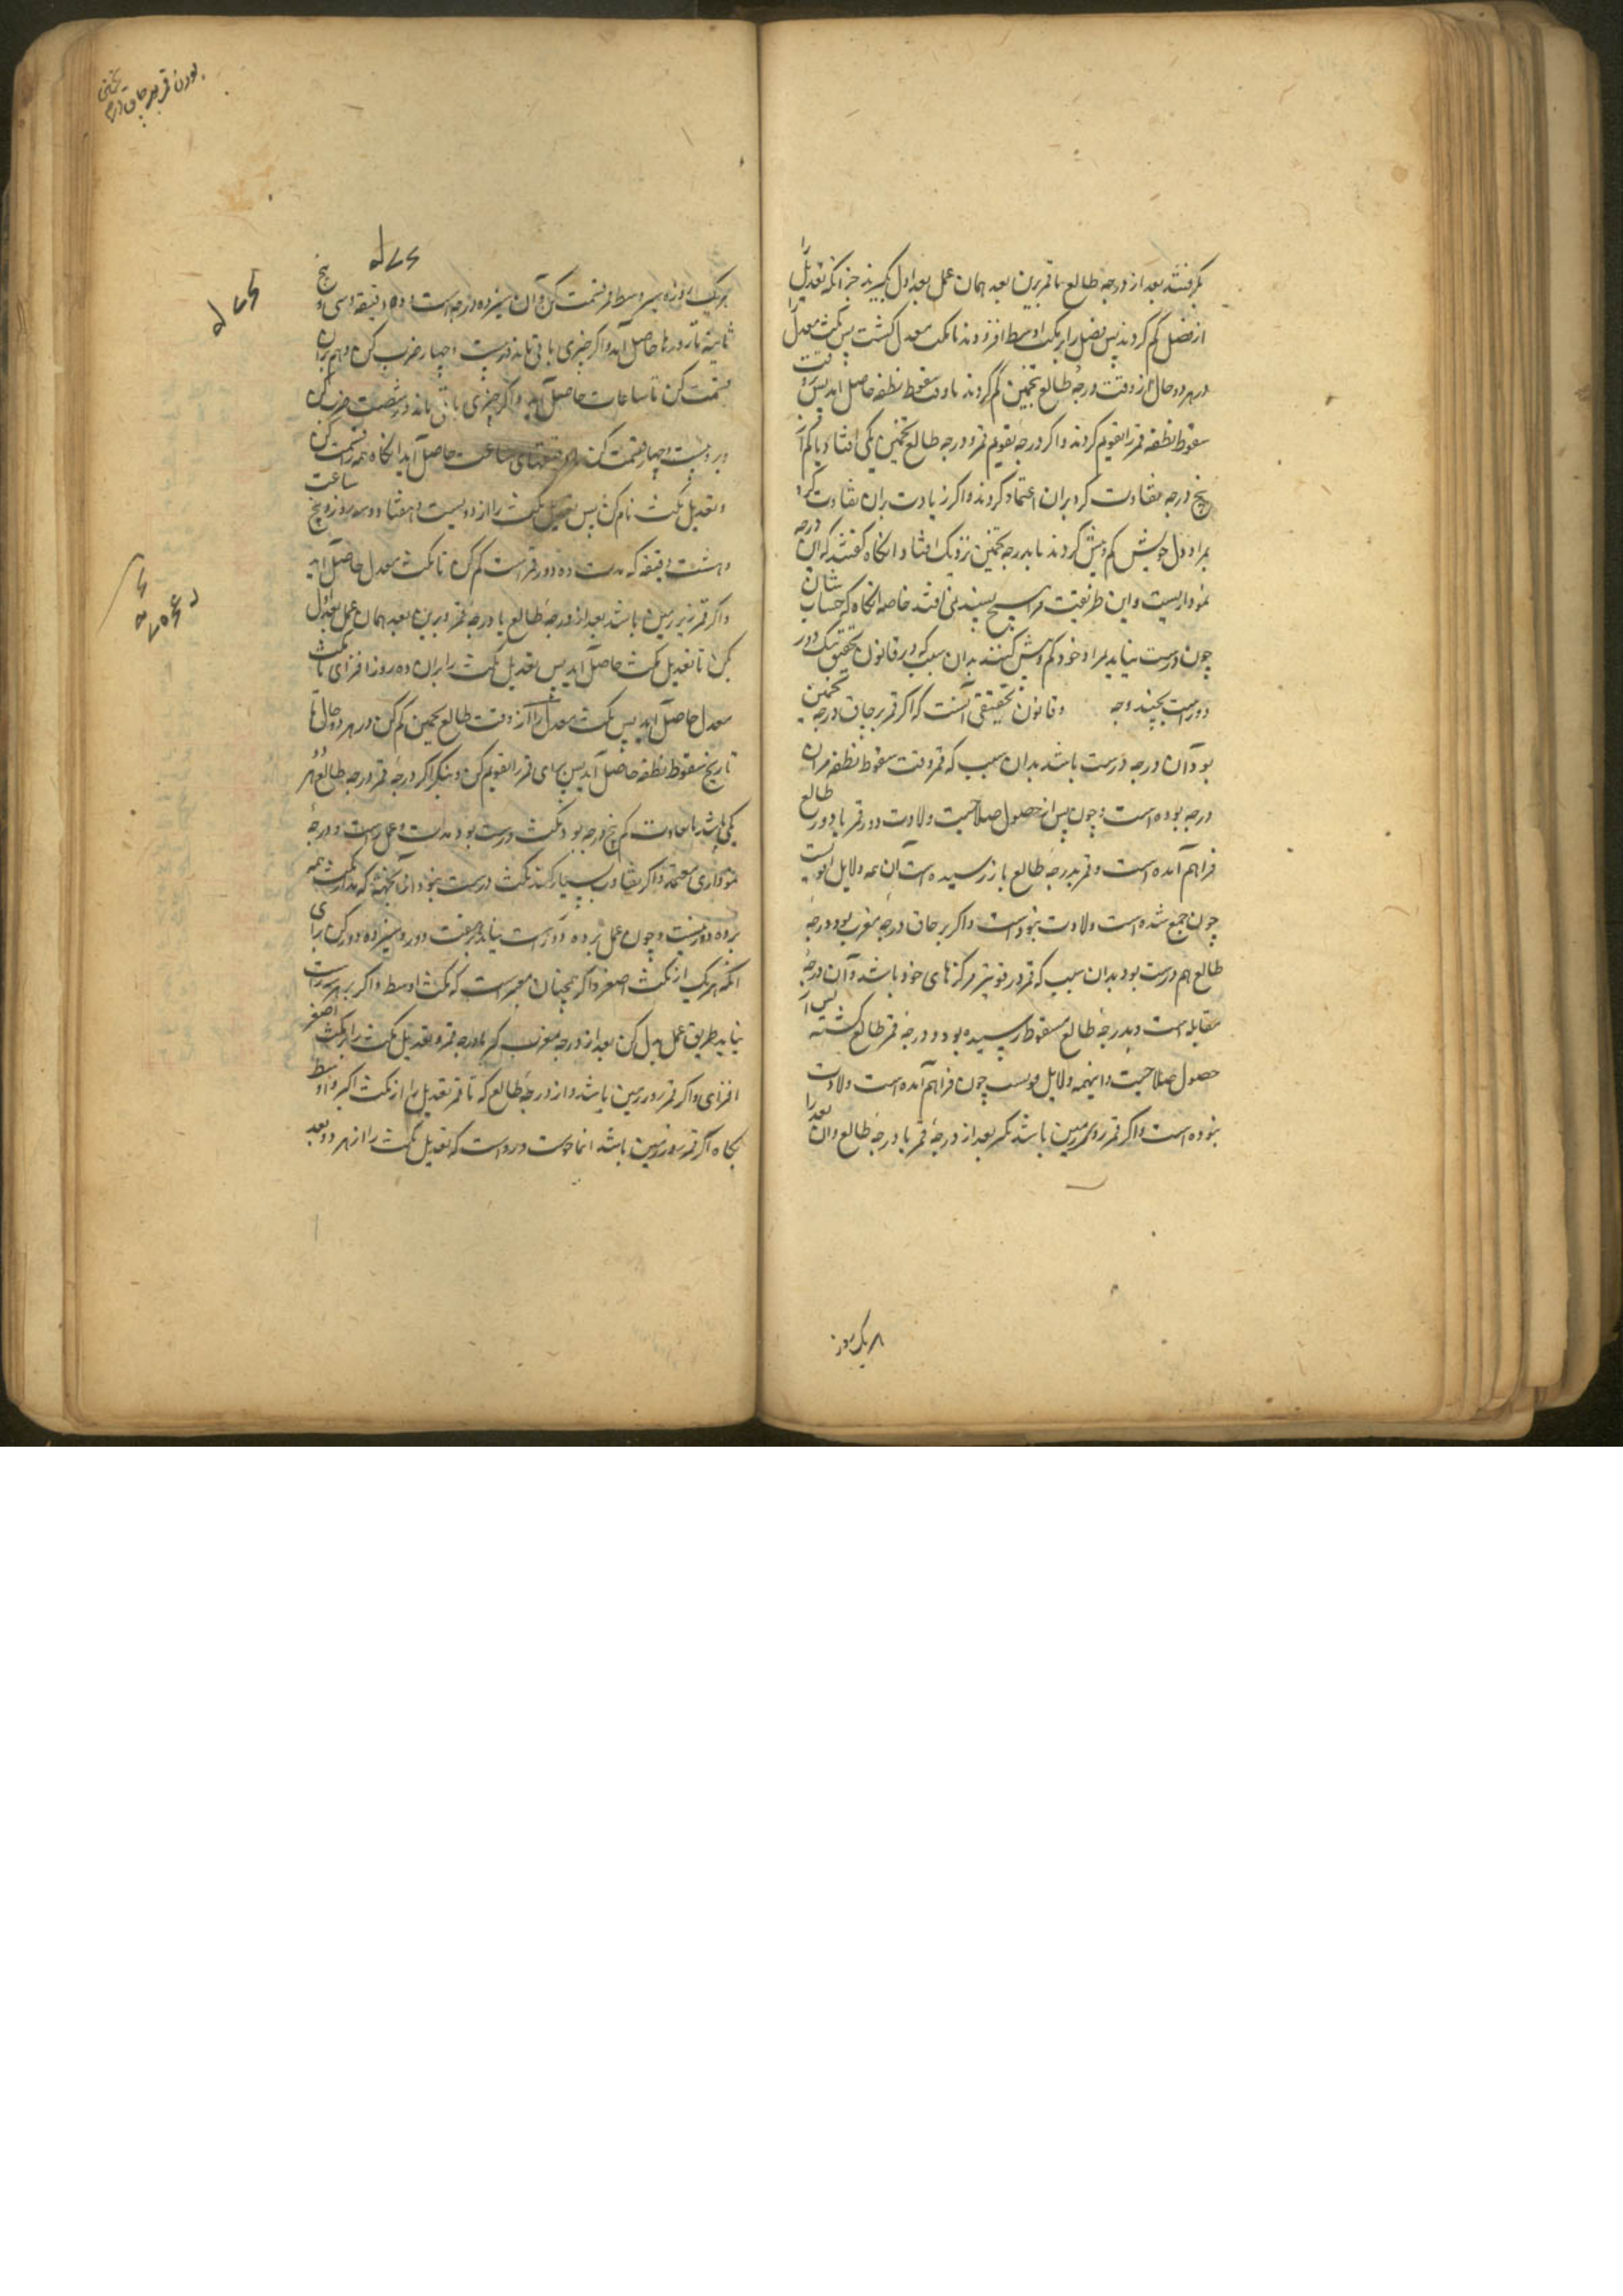 بگرفتند بعد از درجه طالع تا قمر برین بعد همان عمل بعد اول بگیرند جز آنکه تعدیل را
از فضل کم کردند پس فضل را بر مکث اوسط افزودند تا مکث معدل گشت پس مکث معدل را
در هر دو حال از وقت درجهٔ طالع تخمین کم کردند تا وقت سقوط نطفه حاصل اید پس وقت
سقوط نطفه قمر را تقویم کردند و اگر درجهٔ تقویم قمر و درجه طالع تخمین یکی افتاد یا کم از
پنج درجه تفاوت کرد بران اعتماد کردند و اگر زیادت بران تفاوت کرد
بمراد دل خویش کم و بیش کردند تا بدرجه تخمین نزدیک افتاد و انگاه گفتند که این درجه
نموداریست و این طریقت مرا هیچ پسندیده نی افتد خاصه انگاه که حساب شان
چون درست نیاید بمراد خود کم و بیش کنند بدان سبب که در قانون تحقیق یک دور
دور است بچند وجه و قانون تحقیقی آنست که اگر قمر بر جای درجه تخمین
بود آن درجه درست باشد بدان سبب که قمر وقت سقوط نطفه مران
درجه بوده است و چون پس از حصول صلاحیت ولادت دور قمر با دور طالع
فراهم آمده است و قمر بدرجهٔ طالع باز رسیده است آن همه دلایل قویست
چون جمع شده است ولادت بنوده است و اگر بر جای درجهٔ مغرب بود درجهٔ
طالع هم درست بود بدان سبب که قمر در قوتیتر مرکزهای خود باشد و آن درجهٔ
مقابله است و بدرجهٔ طالع مسقوط رسیده بود و درجهٔ قمر طالع گشته پس از
حصول صلاحیت و اینهمه دلایل قویست چون فراهم آمده است ولادت
بنوده است و اگر قمر روی زمین باشد بگیر بعد از درجهٔ قمر تا درجهٔ طالع و ان بعد را
بر یک روز
بودن قمر بر جای درجه تخمین
بر یک روزه سیر وسط قمر قسمت کن و ان سیزده درجه است و ده دقیقه و سی و پنج
ثانیه تا روزها حاصل آید و اگر چیزی باقی ماند در بیست و چهار ضرب کن و هم بران
قسمت کن تا ساعات حاصل آید و اگر چیزی باقی ماند در شصت ضرب کن
و بر بیست و چهار قسمت کن تا دقیقهای ساعت حاصل آید انگاه همه را قسمت کن
و تعدیل مکث نام کن پس تعدیل مکث را از دویست و هفتاد و سه روز و پنج ساعت
و هشت دقیقه که مدت ده دور قمر است کم کن تا مکث معدل حاصل اید
و اگر قمر زیر زمین باشد بعد از درجهٔ طالع تا درجهٔ قمر و برین بعد همان عمل بعد اول
بکن تا تعدیل مکث حاصل آید پس تعدیل مکث را بران ده روز افزای تا مکث
معدل حاصل آید پس مکث معدل را از وقت طالع تخمین کم کن در هر دو حال تا
تاریخ سقوط نطفه حاصل آید پس برای قمر را تقویم کن و بنگر اگر درجهٔ قمر و درجه طالع هر دو
یکی باشد یا تفاوت کم پنج درجه بود مکث درست بود مدت و عمل راست و درجهٔ
نموداری معتمد و اگر تفاوت بسیار کند مکث درست نبود از آنجهت که مدار مکث همه
بر ده دور نیست و چون عمل بر ده دور راست نیاید بر هفت دور و سیزده دور کن برای
انکه هر یک از مکث اصغر و اکبر همچنان معبر است که مکث اوسط و اگر بر هر سه راست
نیاید طریق عمل بدل کن بعد از درجه مغرب گیر تا درجه قمر و تعدیل مکث را بر مکث اصغر
افزای و اگر قمر زیر زمین باشد و از درجهٔ طالع که تا قمر تعدیل را از مکث اکبر و اوسط
بکاه اگر قمر روی زمین باشد انجا درست و رواست که تعدیل مکث را از هر دو بعد